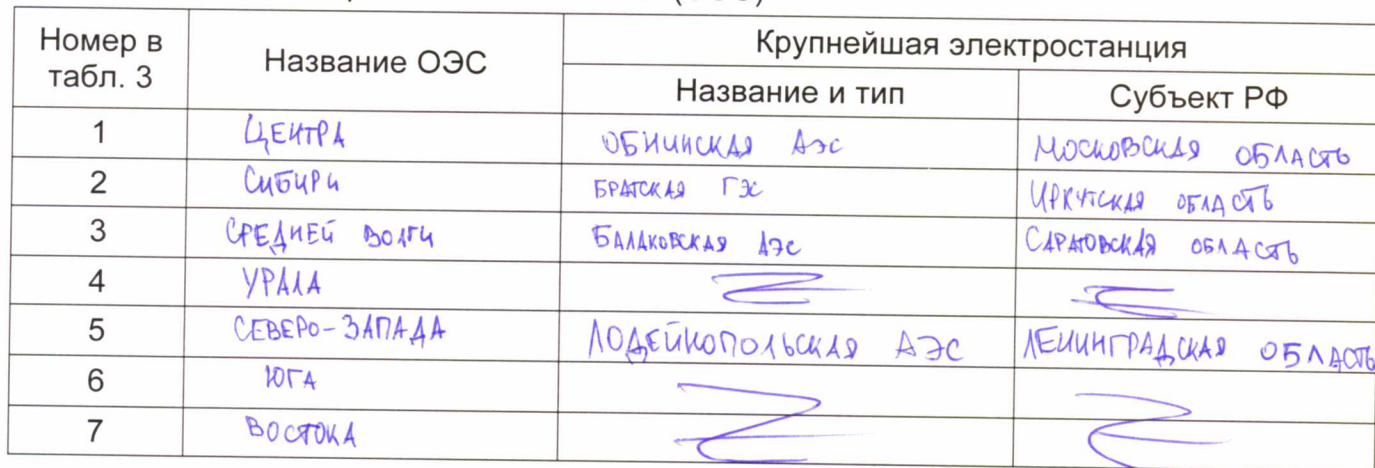 Номер в табл. 3 | Название ОЭС | Крупнейшая электростанция
Название и тип | Субъект РФ
1 | ЦЕНТРА | ОБНИНСКАЯ АЭС | МОСКОВСКАЯ ОБЛАСТЬ
2 | СИБИРИ | БРАТСКАЯ ГЭС | ИРКУТСКАЯ ОБЛАСТЬ
3 | СРЕДНЕЙ ВОЛГИ | БАЛАКОВСКАЯ АЭС | САРАТОВСКАЯ ОБЛАСТЬ
4 | УРАЛА
5 | СЕВЕРО-ЗАПАДА | ЛОДЕЙНОПОЛЬСКАЯ АЭС | ЛЕНИНГРАДСКАЯ ОБЛАСТЬ
6 | ЮГА
7 | ВОСТОКА